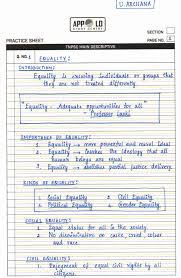 U. ARCHANA
APPOLO
STUDY CENTRE
SECTION
PRACTICE SHEET
TNPSC MAIN DESCRIPTIVE
PAGE NO. 1
Q. NO. 1
EQUALITY:
INTRODUCTION:
Equality is ensuring individuals or groups that
they are not treated differently.
"Equality - Adequate opportunities for all"
- Professor Laski
IMPORTANCE OF EQUALITY:
1. Equality → more powerful and moral ideal
2. Equality → invokes the ideology that all
human beings are equal
3. Equality → abolishes partial justice delivery.
KINDS OF EQUALITY:
1. Social Equality
2. Political Equality
3. Civil Equality
4. Gender Equality
SOCIAL EQUALITY:
1. Equal status for all in the society.
2. No discrimination on cause, creed, colour
and race
CIVIL EQUALITY:
1. Enjoyment of equal civil rights by all
citizens.